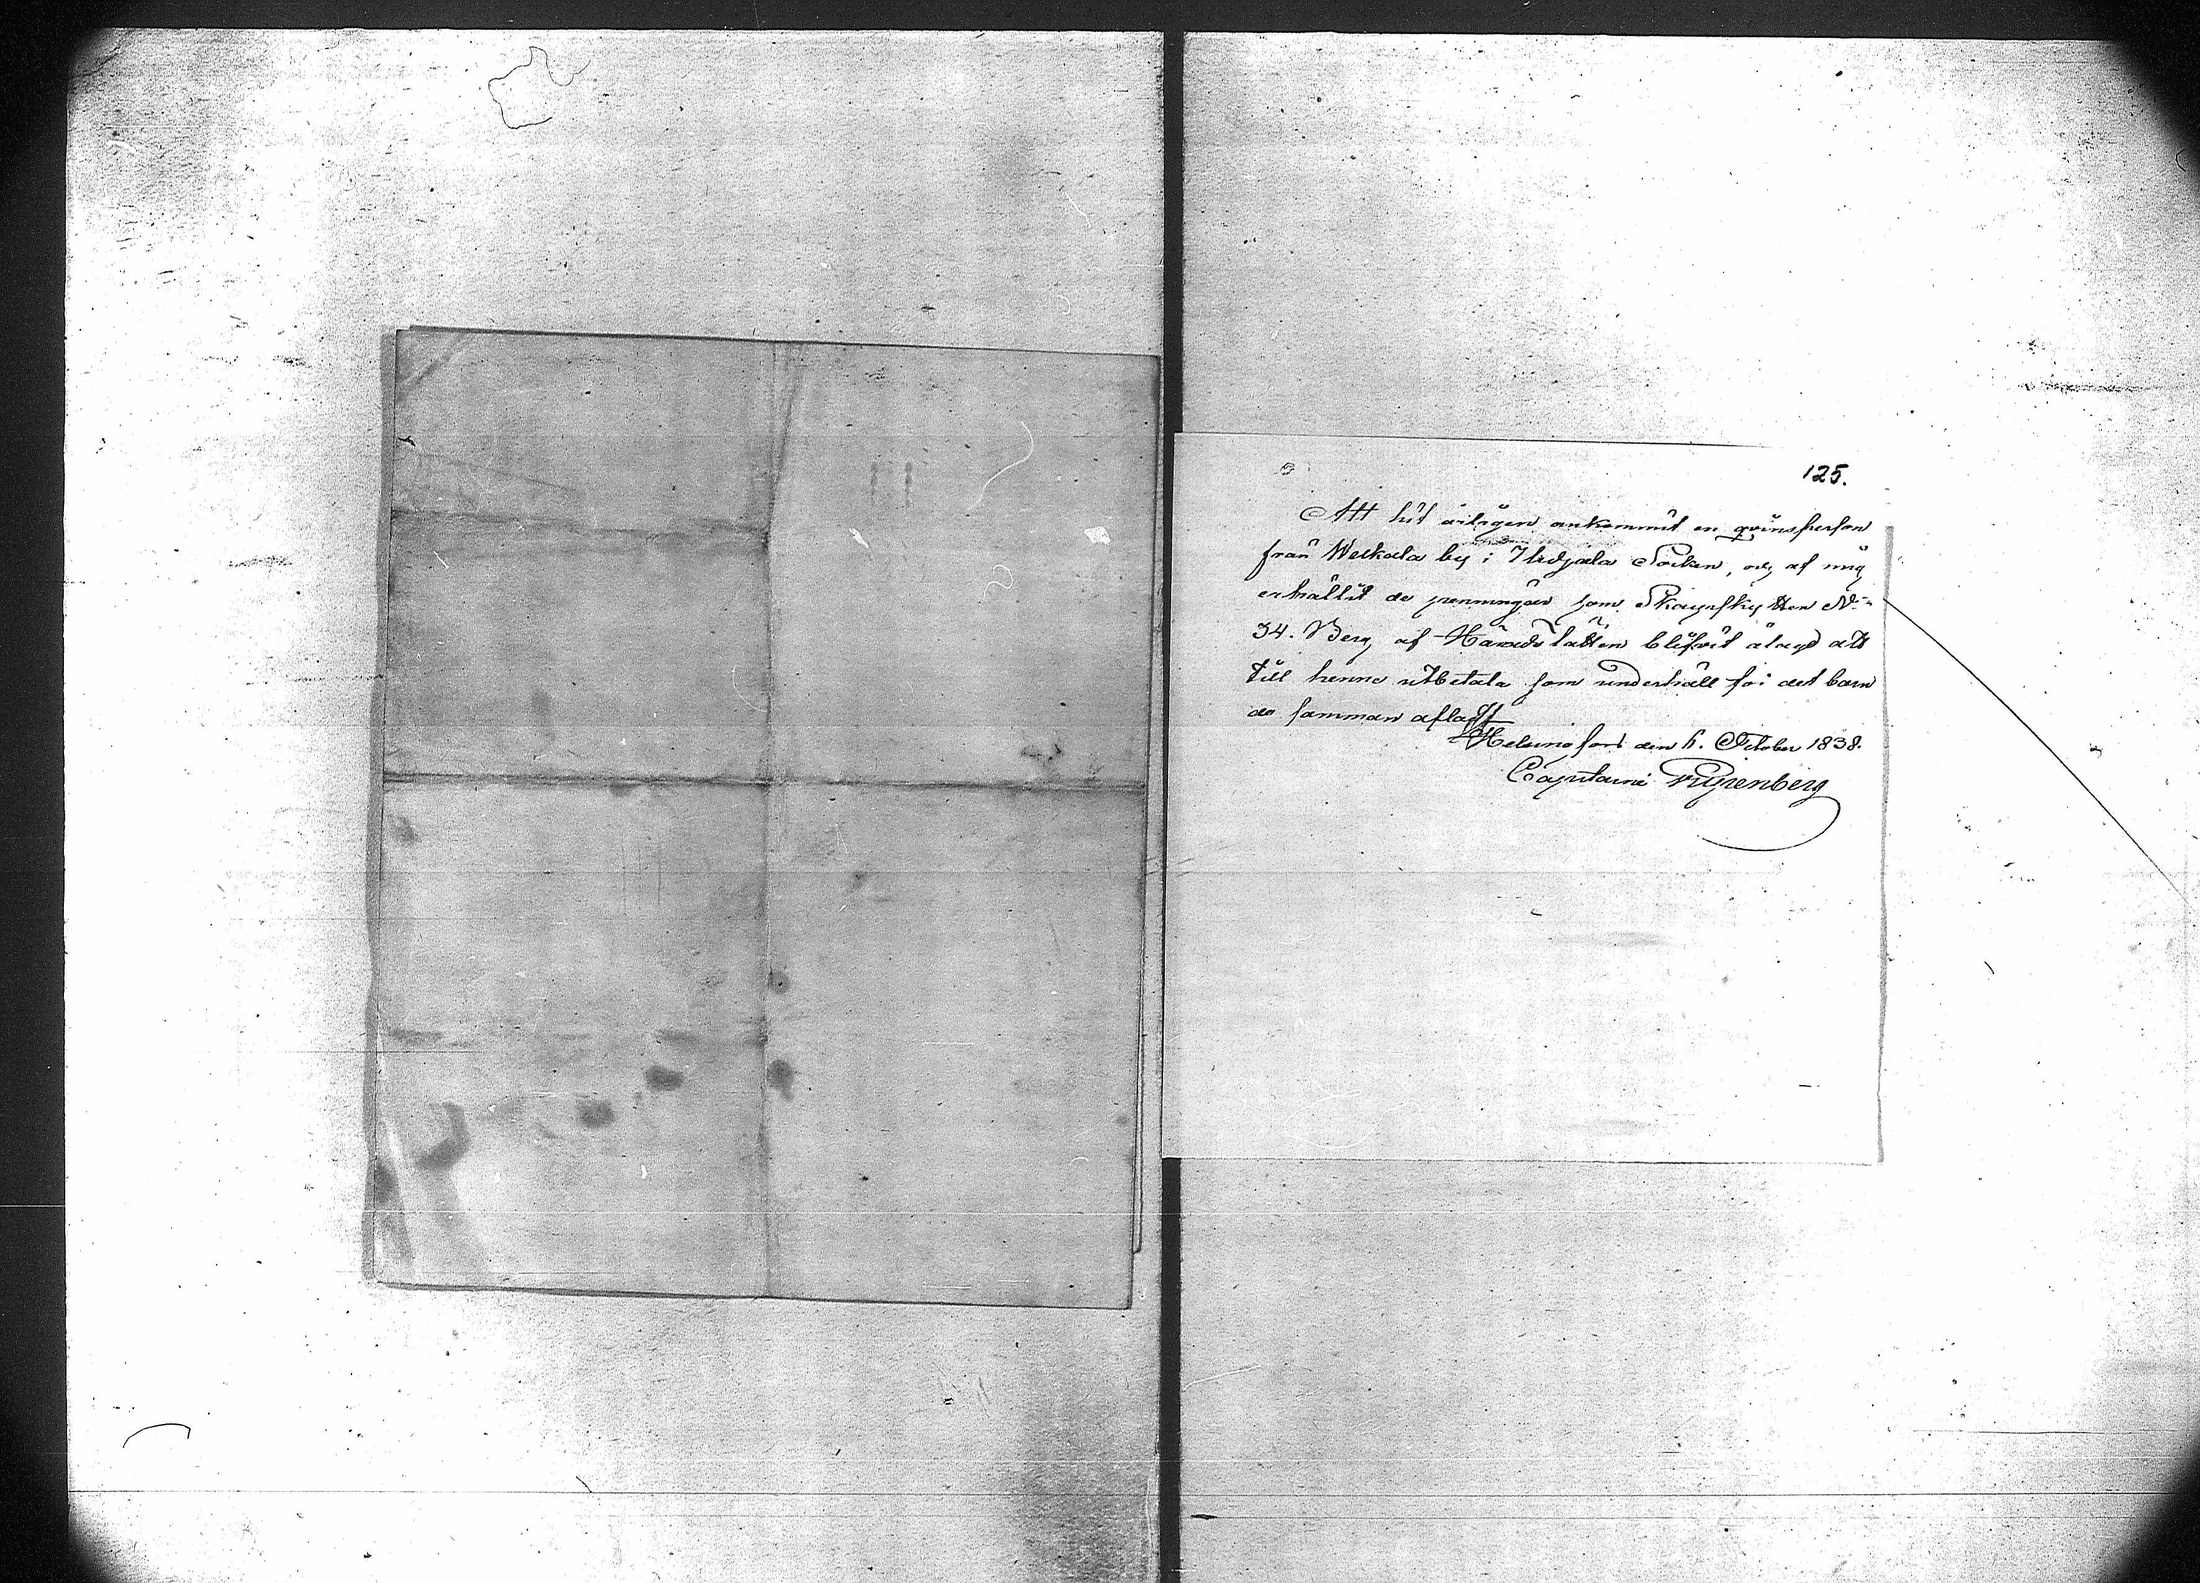 125.
Att hit årligen ankommit en qvinsperson
från Weckala by i Thidjala Socken, och af mig
erhållit de penningar som Skarpskytten N:o
34. Berg af Härads Rätten blifvit ålagd att
till henne utbetala som underhåll för det barn
de samman aflat
Helsingfors den 6. October 1838.
Capitaine